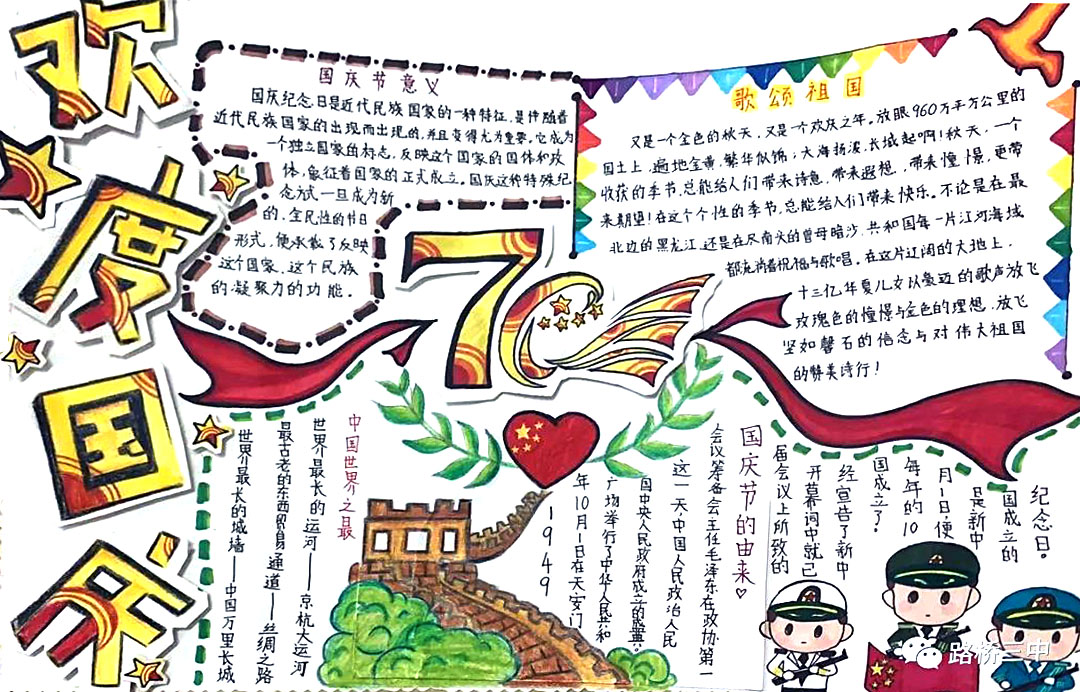 欢度国庆
国庆节意义
国庆纪念日是近代民族国家的一种特征,是伴随着
近代民族国家的出现而出现的,并且变得尤为重要。它成为
一个独立国家的标志,反映这个国家的国体和政
体,象征着国家的正式成立。国庆这种特殊纪
念方式一旦成为新
的、全民性的节日
形式,便承载了反映
这个国家、这个民族
的凝聚力的功能.
歌颂祖国
又是一个金色的秋天,又是一个欢庆之年。放眼960万平方公里的
国土上,遍地金黄,繁华似锦;大海扬波,长城起啊!秋天,一个
收获的季节,总能给人们带来诗意,带来遐想,带来憧憬,更带
来期望!在这个个性的季节,总能给人们带来快乐。不论是在最
北边的黑龙江,还是在尽南头的曾母暗沙,共和国每一片江河海域
都充满着祝福与歌唱。在这片辽阔的大地上,
十三亿华夏儿女以豪迈的歌声放飞
玫瑰色的憧憬与金色的理想,放飞
坚如磐石的信念与对伟大祖国
的赞美诗行!
70
中国世界之最
世界最长的运河——京杭大运河
最古老的东西贸易通道——丝绸之路
世界最长的城墙——中国万里长城
国庆节的由来
1949
年10月1日在天安门
广场举行了中华人民共和
国中央人民政府成立的盛典。
这一天中国人民政治人民
会议筹备会主任毛泽东在政协第一
届会议上所致的
开幕词中就已
经宣告了新中
国成立了.
每年的10
月1日,便
是新中
国成立的
纪念日。
路桥三中